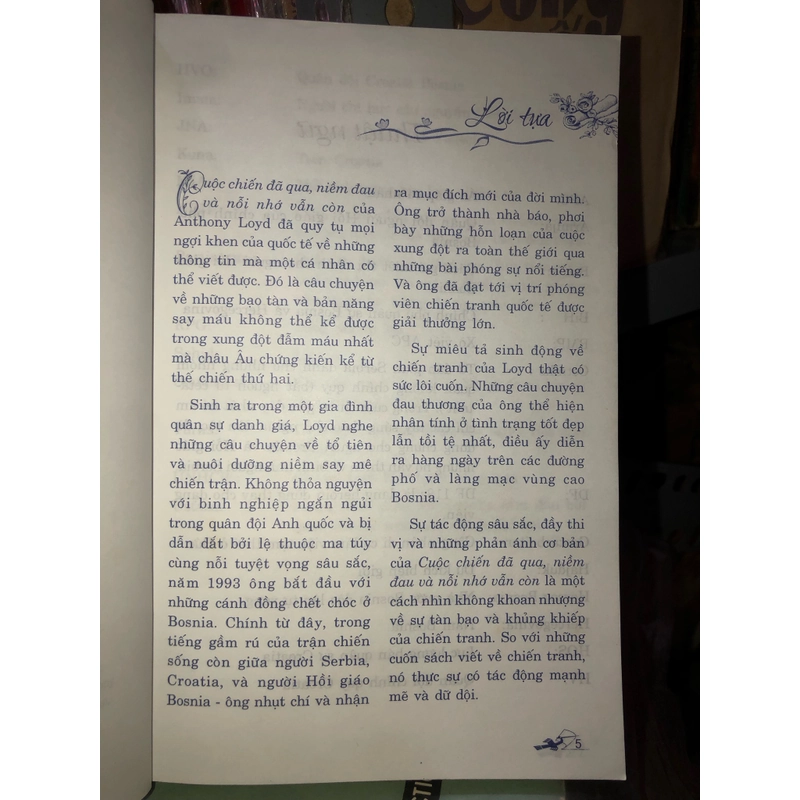 Lời tựa
Cuộc chiến đã qua, niềm đau
và nỗi nhớ vẫn còn của
Anthony Loyd đã quy tụ mọi
ngợi khen của quốc tế về những
thông tin mà một cá nhân có
thể viết được. Đó là câu chuyện
về những bạo tàn và bản năng
say máu không thể kể được
trong xung đột đẫm máu nhất
mà châu Âu chứng kiến kể từ
thế chiến thứ hai.
Sinh ra trong một gia đình
quân sự danh giá, Loyd nghe
những câu chuyện về tổ tiên
và nuôi dưỡng niềm say mê
chiến trận. Không thỏa nguyện
với binh nghiệp ngắn ngủi
trong quân đội Anh quốc và bị
dẫn dắt bởi lệ thuộc ma túy
cùng nỗi tuyệt vọng sâu sắc,
năm 1993 ông bắt đầu với
những cánh đồng chết chóc ở
Bosnia. Chính từ đây, trong
tiếng gầm rú của trận chiến
sống còn giữa người Serbia,
Croatia, và người Hồi giáo
Bosnia - ông nhụt chí và nhận
ra mục đích mới của đời mình.
Ông trở thành nhà báo, phơi
bày những hỗn loạn của cuộc
xung đột ra toàn thế giới qua
những bài phóng sự nổi tiếng.
Và ông đã đạt tới vị trí phóng
viên chiến tranh quốc tế được
giải thưởng lớn.
Sự miêu tả sinh động về
chiến tranh của Loyd thật có
sức lôi cuốn. Những câu chuyện
đau thương của ông thể hiện
nhân tính ở tình trạng tốt đẹp
lẫn tồi tệ nhất, điều ấy diễn
ra hàng ngày trên các đường
phố và làng mạc vùng cao
Bosnia.
Sự tác động sâu sắc, đầy thi
vị và những phản ánh cơ bản
của Cuộc chiến đã qua, niềm
đau và nỗi nhớ vẫn còn là một
cách nhìn không khoan nhượng
về sự tàn bạo và khủng khiếp
của chiến tranh. So với những
cuốn sách viết về chiến tranh,
nó thực sự có tác động mạnh
mẽ và dữ dội.
5